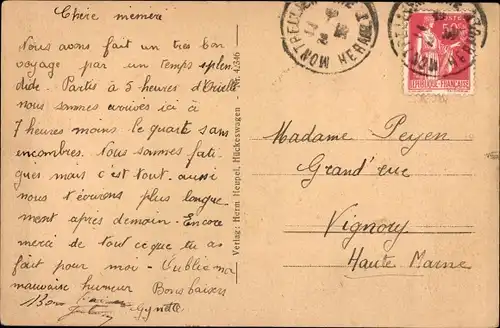 Chère mémère
Nous avons fait un tres bon
voyage par un temps splen
dide. Partis à 5 heures
nous sommes arrivés ici à
7 heures moins le quart sans
encombres. Nous sommes fati
gués mais c'est tout. aussi
nous t'écrirons plus longue
ment après demain. Encore
merci de tout ce que tu as
fait pour moi - Oublie ma
mauvaise humeur Bons baisers
Bons
Gynette
Verlag: Herm. Hempel, Hückeswagen - Nr. 4/346
MONTPELLIER
HERAULT
50c
REPUBLIQUE FRANÇAISE
Madame Peyen
Grand'rue
Vignory
Haute Marne